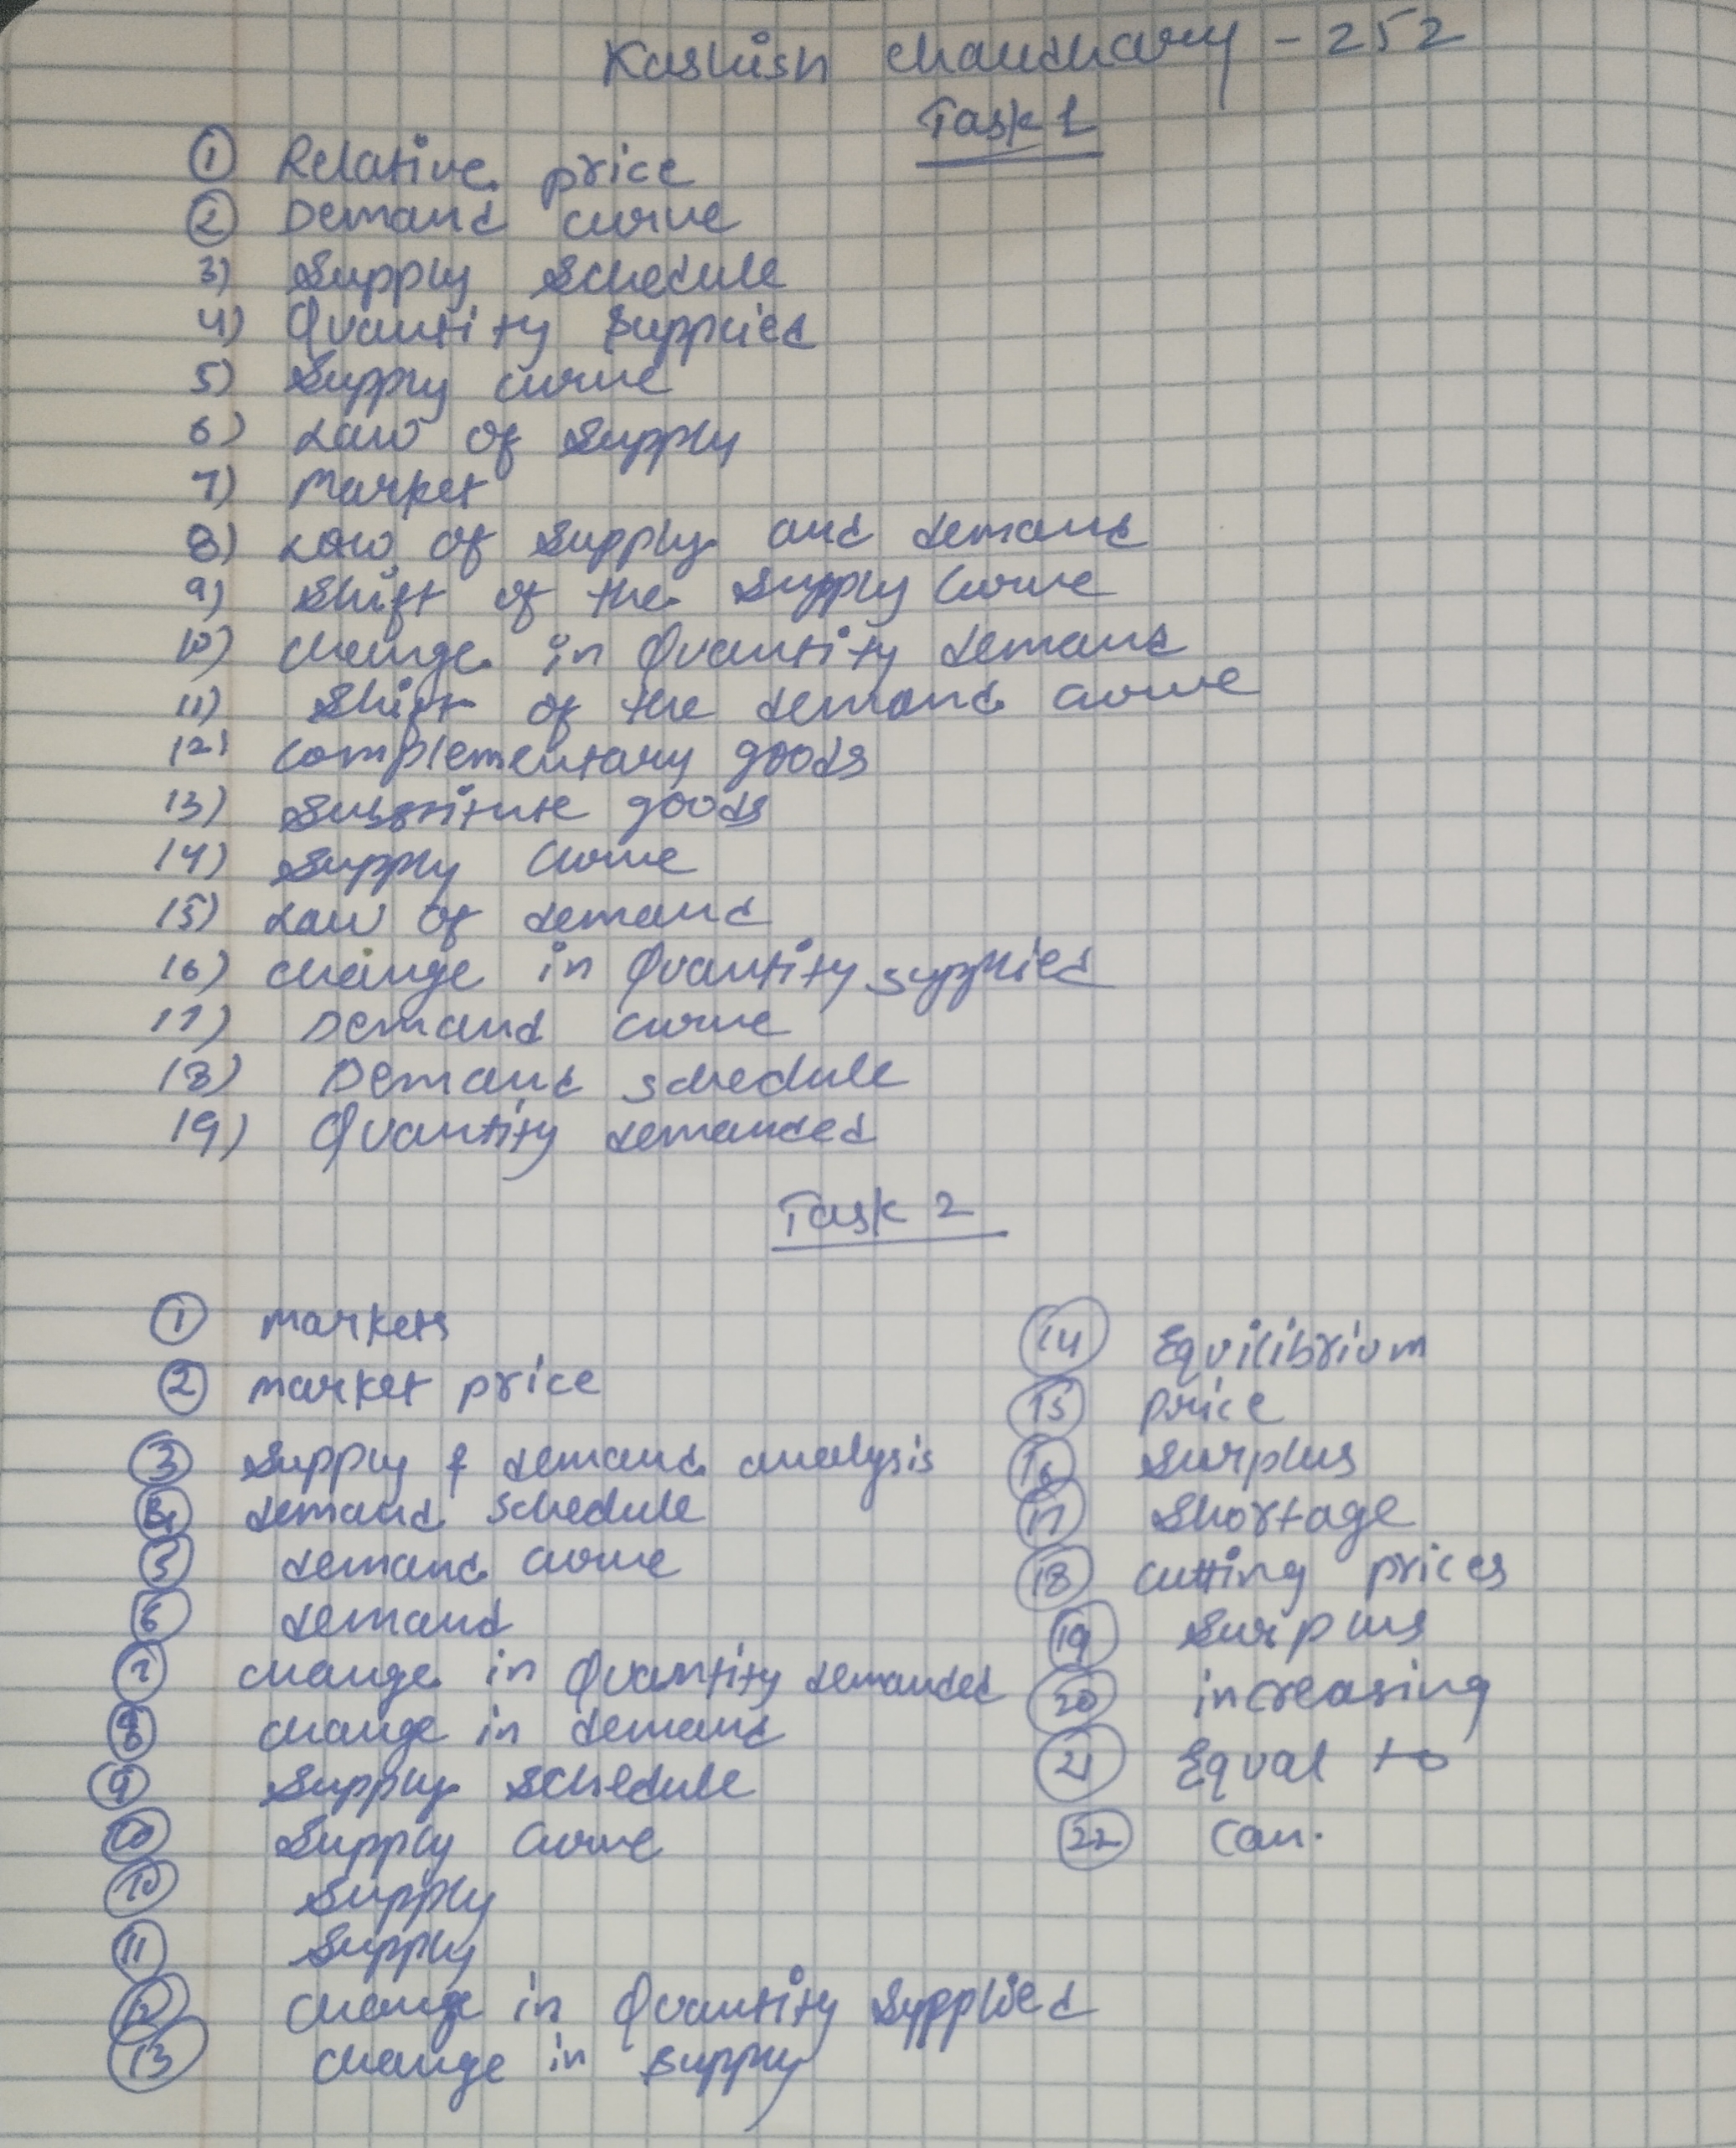 Kashish Chaudhary - 252
Task 1
① Relative price
② Demand curve
3) Supply Schedule
4) Quantity Supplied
5) Supply curve
6) Law of Supply
7) Market
8) Law of Supply and demand
9) Shift of the Supply Curve
10) Change in Quantity demand
11) Shift of the demand curve
12) Complementary goods
13) Substitute goods
14) Supply Curve
15) Law of demand
16) Change in Quantity supplied
17) Demand curve
18) Demand schedule
19) Quantity demanded
Task 2
① markets
② market price
③ Supply & demand analysis
④ demand schedule
⑤ demand curve
⑥ demand
⑦ change in Quantity demanded
⑧ change in demand
⑨ Supply schedule
⑩ Supply Curve
⑩ Supply
⑪ Supply
⑫ Change in Quantity Supplied
⑬ Change in Supply
⑭ Equilibrium
⑮ price
⑯ Surplus
⑰ Shortage
⑱ cutting prices
⑲ Surplus
⑳ increasing
㉑ Equal to
㉒ Can.